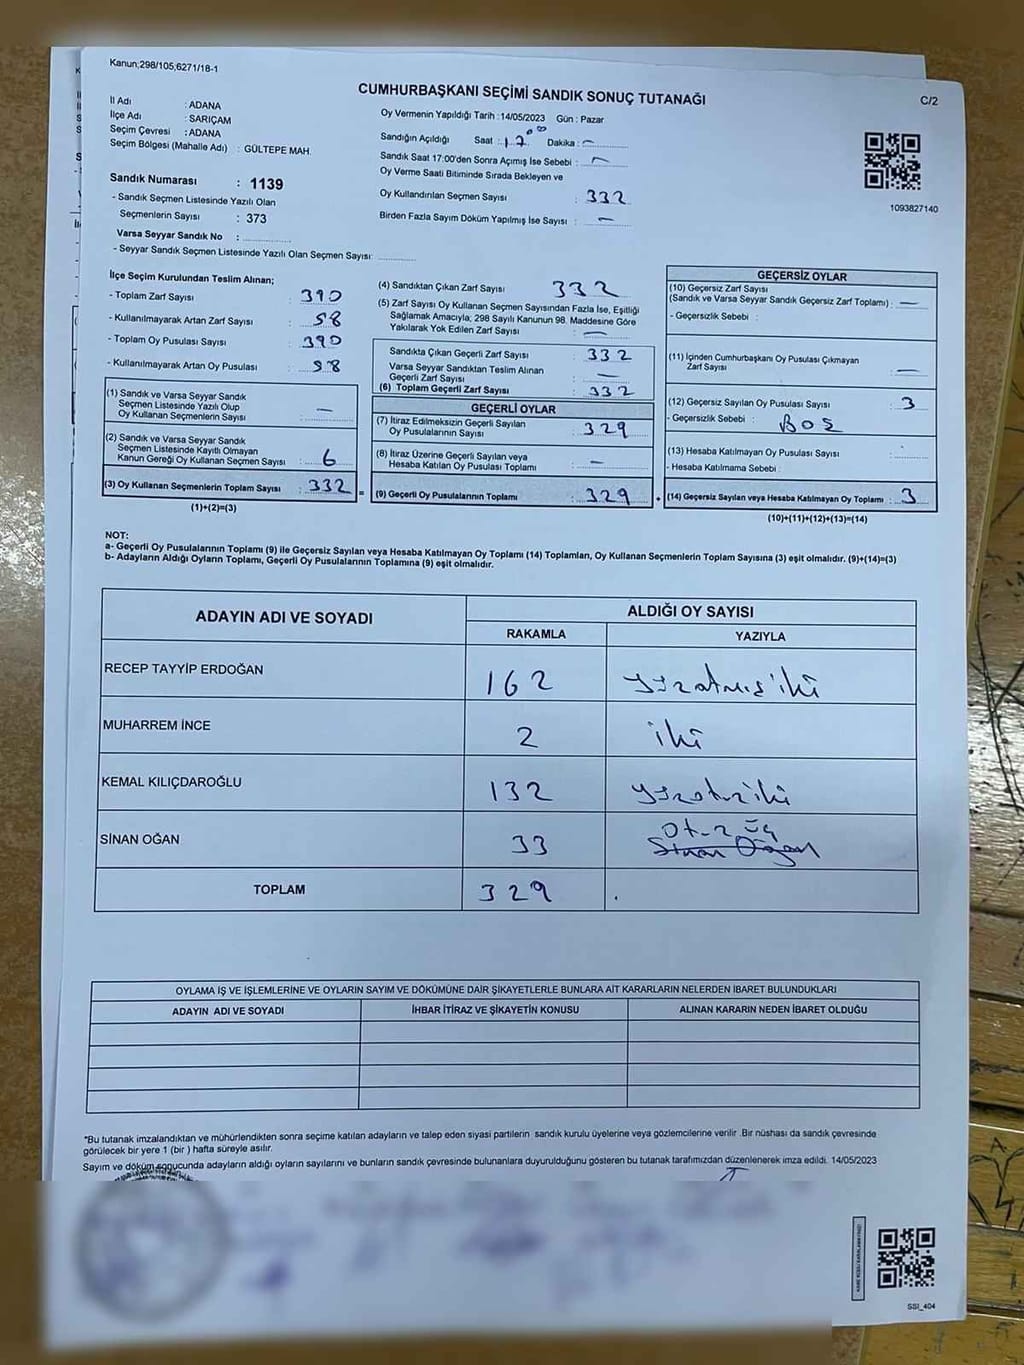 Kanun;298/105,6271/18-1
CUMHURBAŞKANI SEÇİMİ SANDIK SONUÇ TUTANAĞI
C/2
İl Adı : ADANA
İlçe Adı : SARIÇAM
Seçim Çevresi : ADANA
Seçim Bölgesi (Mahalle Adı) : GÜLTEPE MAH.
Sandık Numarası : 1139
- Sandık Seçmen Listesinde Yazılı Olan
Seçmenlerin Sayısı : 373
Varsa Seyyar Sandık No :
- Seyyar Sandık Seçmen Listesinde Yazılı Olan Seçmen Sayısı:
Oy Vermenin Yapıldığı Tarih : 14/05/2023 Gün : Pazar
Sandığın Açıldığı Saat : 17 00 Dakika : -
Sandık Saat 17:00'den Sonra Açımış İse Sebebi : -
Oy Verme Saati Bitiminde Sırada Bekleyen ve
Oy Kullandırılan Seçmen Sayısı : 332
Birden Fazla Sayım Döküm Yapılmış İse Sayısı : -
1093827140
İlçe Seçim Kurulundan Teslim Alınan;
- Toplam Zarf Sayısı : 390
- Kullanılmayarak Artan Zarf Sayısı : 58
- Toplam Oy Pusulası Sayısı : 390
- Kullanılmayarak Artan Oy Pusulası : 98
(1) Sandık ve Varsa Seyyar Sandık
Seçmen Listesinde Yazılı Olup
Oy Kullanan Seçmenlerin Sayısı : -
(2) Sandık ve Varsa Seyyar Sandık
Seçmen Listesinde Kayıtlı Olmayan
Kanun Gereği Oy Kullanan Seçmen Sayısı : 6
(3) Oy Kullanan Seçmenlerin Toplam Sayısı : 332
(1)+(2)=(3)
(4) Sandıktan Çıkan Zarf Sayısı : 332
(5) Zarf Sayısı Oy Kullanan Seçmen Sayısından Fazla İse, Eşitliği
Sağlamak Amacıyla; 298 Sayılı Kanunun 98. Maddesine Göre
Yakılarak Yok Edilen Zarf Sayısı : -
Sandıkta Çıkan Geçerli Zarf Sayısı : 332
Varsa Seyyar Sandıktan Teslim Alınan
Geçerli Zarf Sayısı : -
(6) Toplam Geçerli Zarf Sayısı : 332
GEÇERLİ OYLAR
(7) İtiraz Edilmeksizin Geçerli Sayılan
Oy Pusulalarının Sayısı : 329
(8) İtiraz Üzerine Geçerli Sayılan veya
Hesaba Katılan Oy Pusulası Toplamı : -
= (9) Geçerli Oy Pusulalarının Toplamı : 329
GEÇERSİZ OYLAR
(10) Geçersiz Zarf Sayısı
(Sandık ve Varsa Seyyar Sandık Geçersiz Zarf Toplamı) : -
- Geçersizlik Sebebi :
(11) İçinden Cumhurbaşkanı Oy Pusulası Çıkmayan
Zarf Sayısı : -
(12) Geçersiz Sayılan Oy Pusulası Sayısı : 3
- Geçersizlik Sebebi : BOŞ
(13) Hesaba Katılmayan Oy Pusulası Sayısı :
- Hesaba Katılmama Sebebi :
+ (14) Geçersiz Sayılan veya Hesaba Katılmayan Oy Toplamı : 3
(10)+(11)+(12)+(13)=(14)
NOT:
a- Geçerli Oy Pusulalarının Toplamı (9) ile Geçersiz Sayılan veya Hesaba Katılmayan Oy Toplamı (14) Toplamları, Oy Kullanan Seçmenlerin Toplam Sayısına (3) eşit olmalıdır. (9)+(14)=(3)
b- Adayların Aldığı Oyların Toplamı, Geçerli Oy Pusulalarının Toplamına (9) eşit olmalıdır.
ADAYIN ADI VE SOYADI
ALDIĞI OY SAYISI
RAKAMLA YAZIYLA
RECEP TAYYİP ERDOĞAN 162 yüzatmış iki
MUHARREM İNCE 2 iki
KEMAL KILIÇDAROĞLU 132 yüzotuziki
SİNAN OĞAN 33 Otuz Üç
Sinan Oğan
TOPLAM 329
OYLAMA İŞ VE İŞLEMLERİNE VE OYLARIN SAYIM VE DÖKÜMÜNE DAİR ŞİKAYETLERLE BUNLARA AİT KARARLARIN NELERDEN İBARET BULUNDUKLARI
ADAYIN ADI VE SOYADI İHBAR İTİRAZ VE ŞİKAYETİN KONUSU ALINAN KARARIN NEDEN İBARET OLDUĞU
*Bu tutanak imzalandıktan ve mühürlendikten sonra seçime katılan adayların ve talep eden siyasi partilerin sandık kurulu üyelerine veya gözlemcilerine verilir .Bir nüshası da sandık çevresinde
görülecek bir yere 1 (bir ) hafta süreyle asılır.
Sayım ve döküm sonucunda adayların aldığı oyların sayılarını ve bunların sandık çevresinde bulunanlara duyurulduğunu gösteren bu tutanak tarafımızdan düzenlenerek imza edildi. 14/05/2023
SSI_404